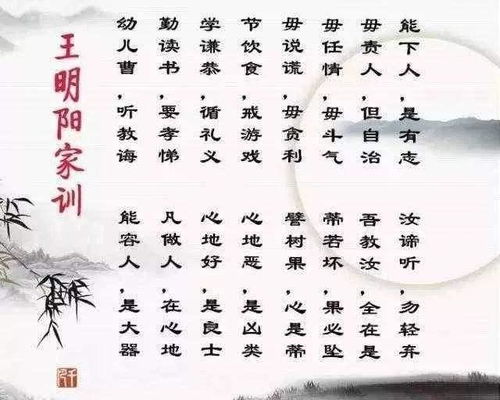 王明阳家训
幼儿曹，听教诲
勤读书，要孝悌
学谦恭，循礼义
节饮食，戒游戏
毋说谎，毋贪利
毋任情，毋斗气
毋责人，但自治
能下人，是有志
能容人，是大器
凡做人，在心地
心地好，是良士
心地恶，是凶类
譬树果，心是蒂
蒂若坏，果必坠
吾教汝，全在是
汝谛听，勿轻弃